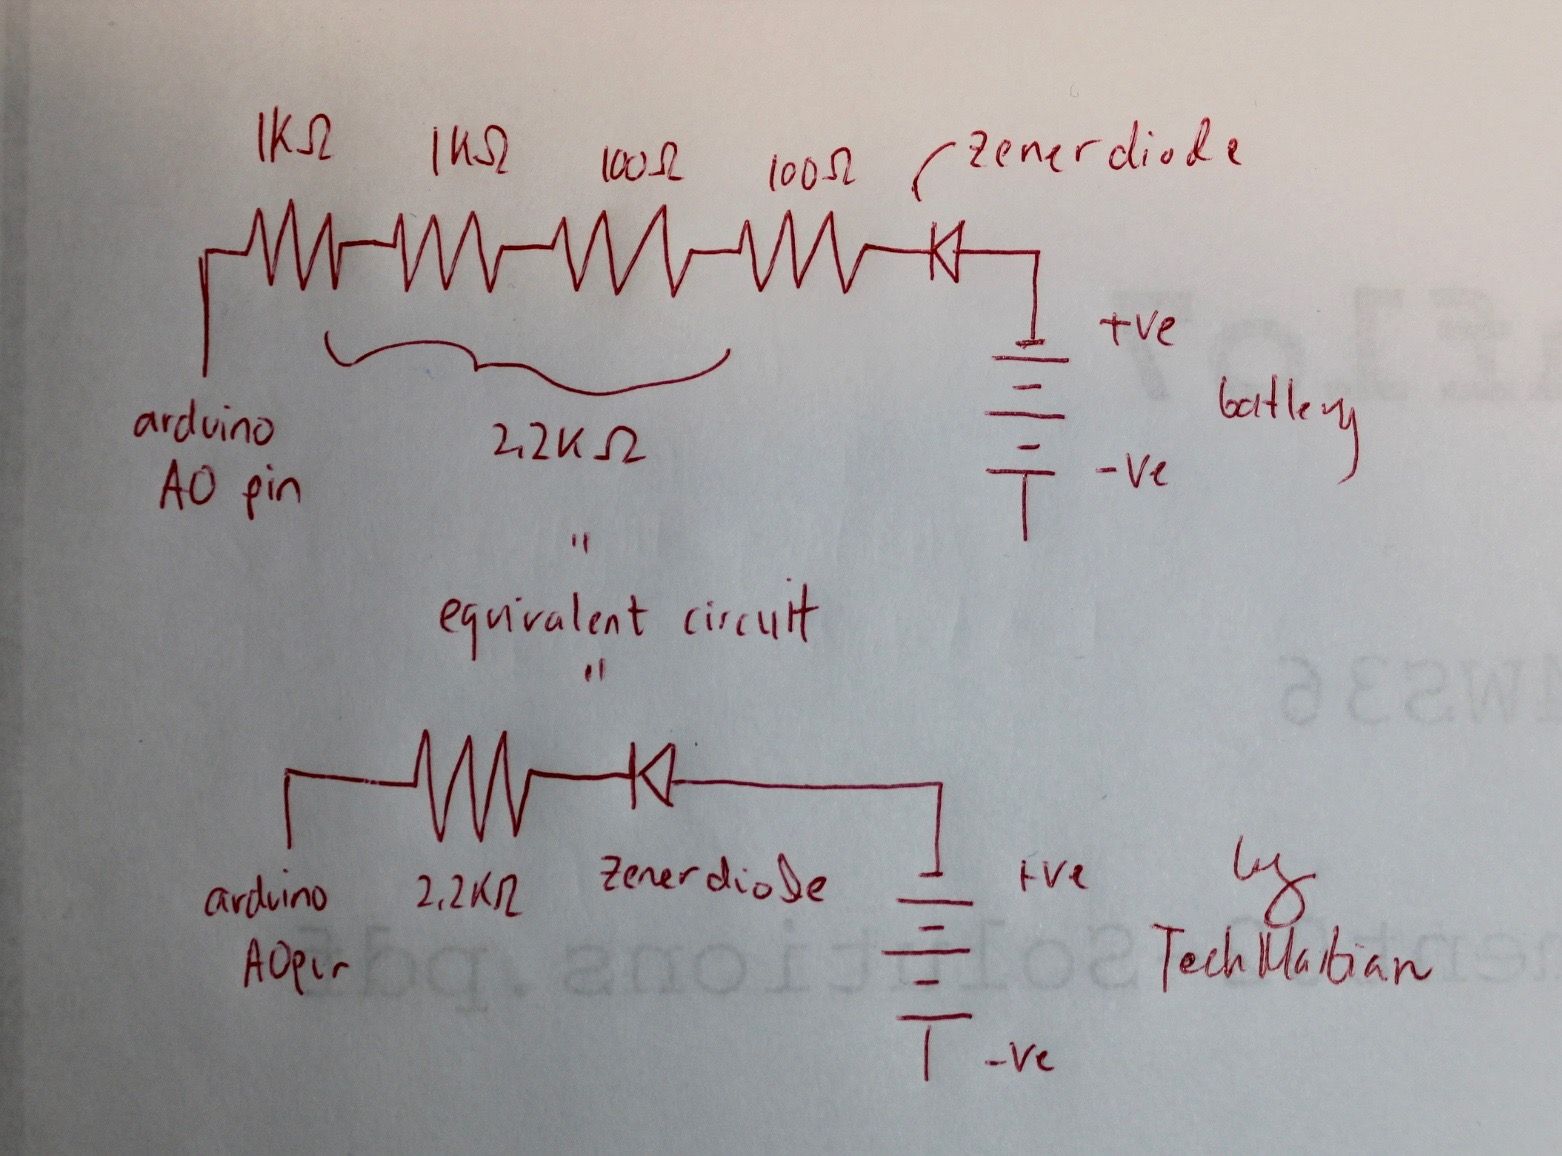 1KΩ 1KΩ 100Ω 100Ω zener diode
+ve
battery
-ve
arduino
A0 pin
2.2KΩ
"
equivalent circuit
"
arduino
A0pin
2.2KΩ
zener diode
+ve
-ve
by
TechMartian
7
WS36
Solutions.pdf